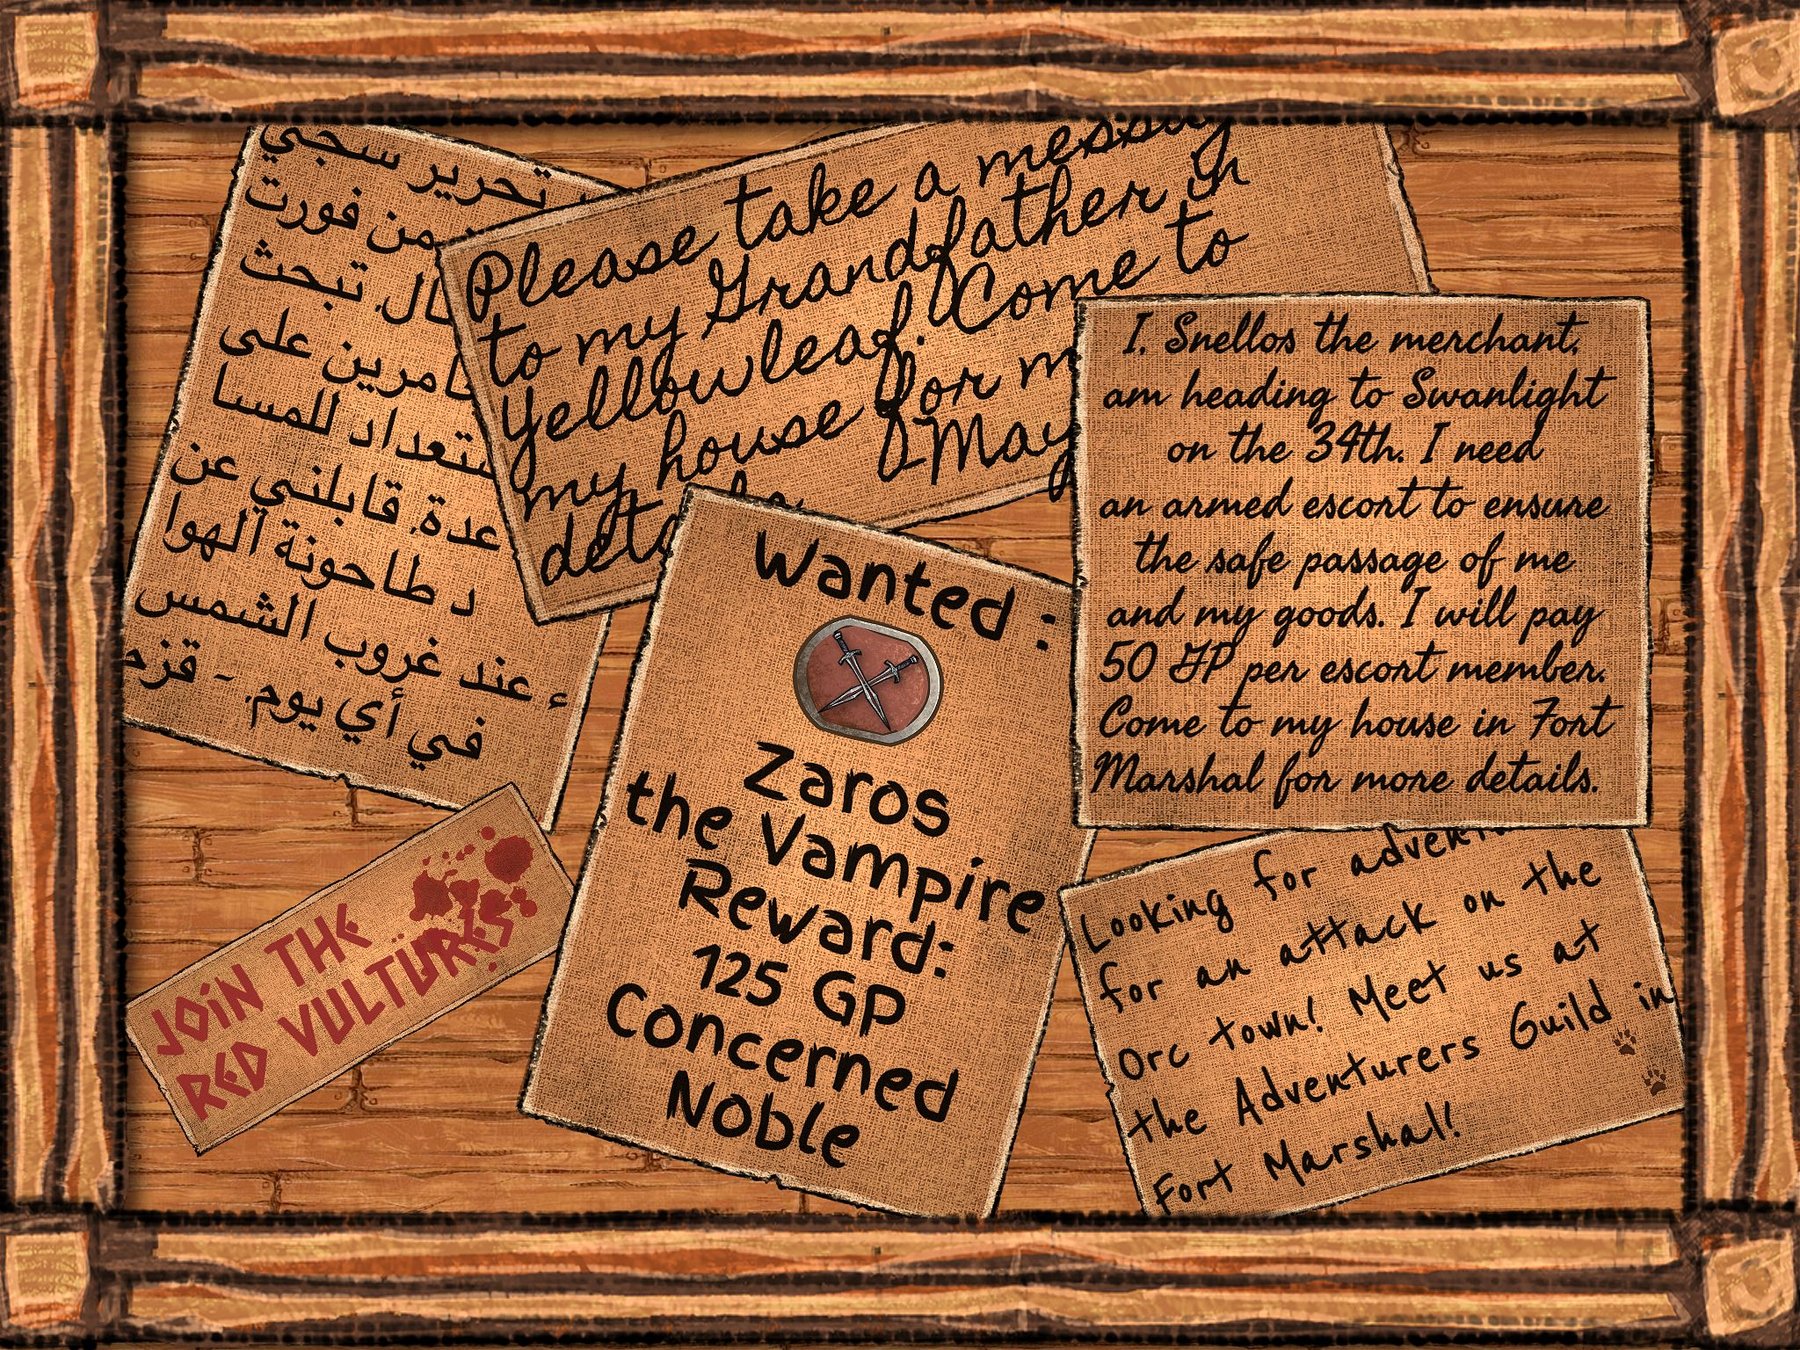 تحرير سجي
من فورت
تبحث
على
للمسا
عدة. قابلني عن
د طاحونة الهوا
ء عند غروب الشمس
في أي يوم. - قزح
Please take a
to my Grandfather in
Yellowleaf. Come to
my house for
-May
I, Snellos the merchant,
am heading to Swanlight
on the 34th. I need
an armed escort to ensure
the safe passage of me
and my goods. I will pay
50 GP per escort member.
Come to my house in Fort
Marshal for more details.
Wanted :
Zaros
the Vampire
Reward:
125 GP
Concerned
Noble
JOIN THE
RED VULTURES
Looking for
for an attack on the
Orc town! Meet us at
the Adventurers Guild in
Fort Marshal!